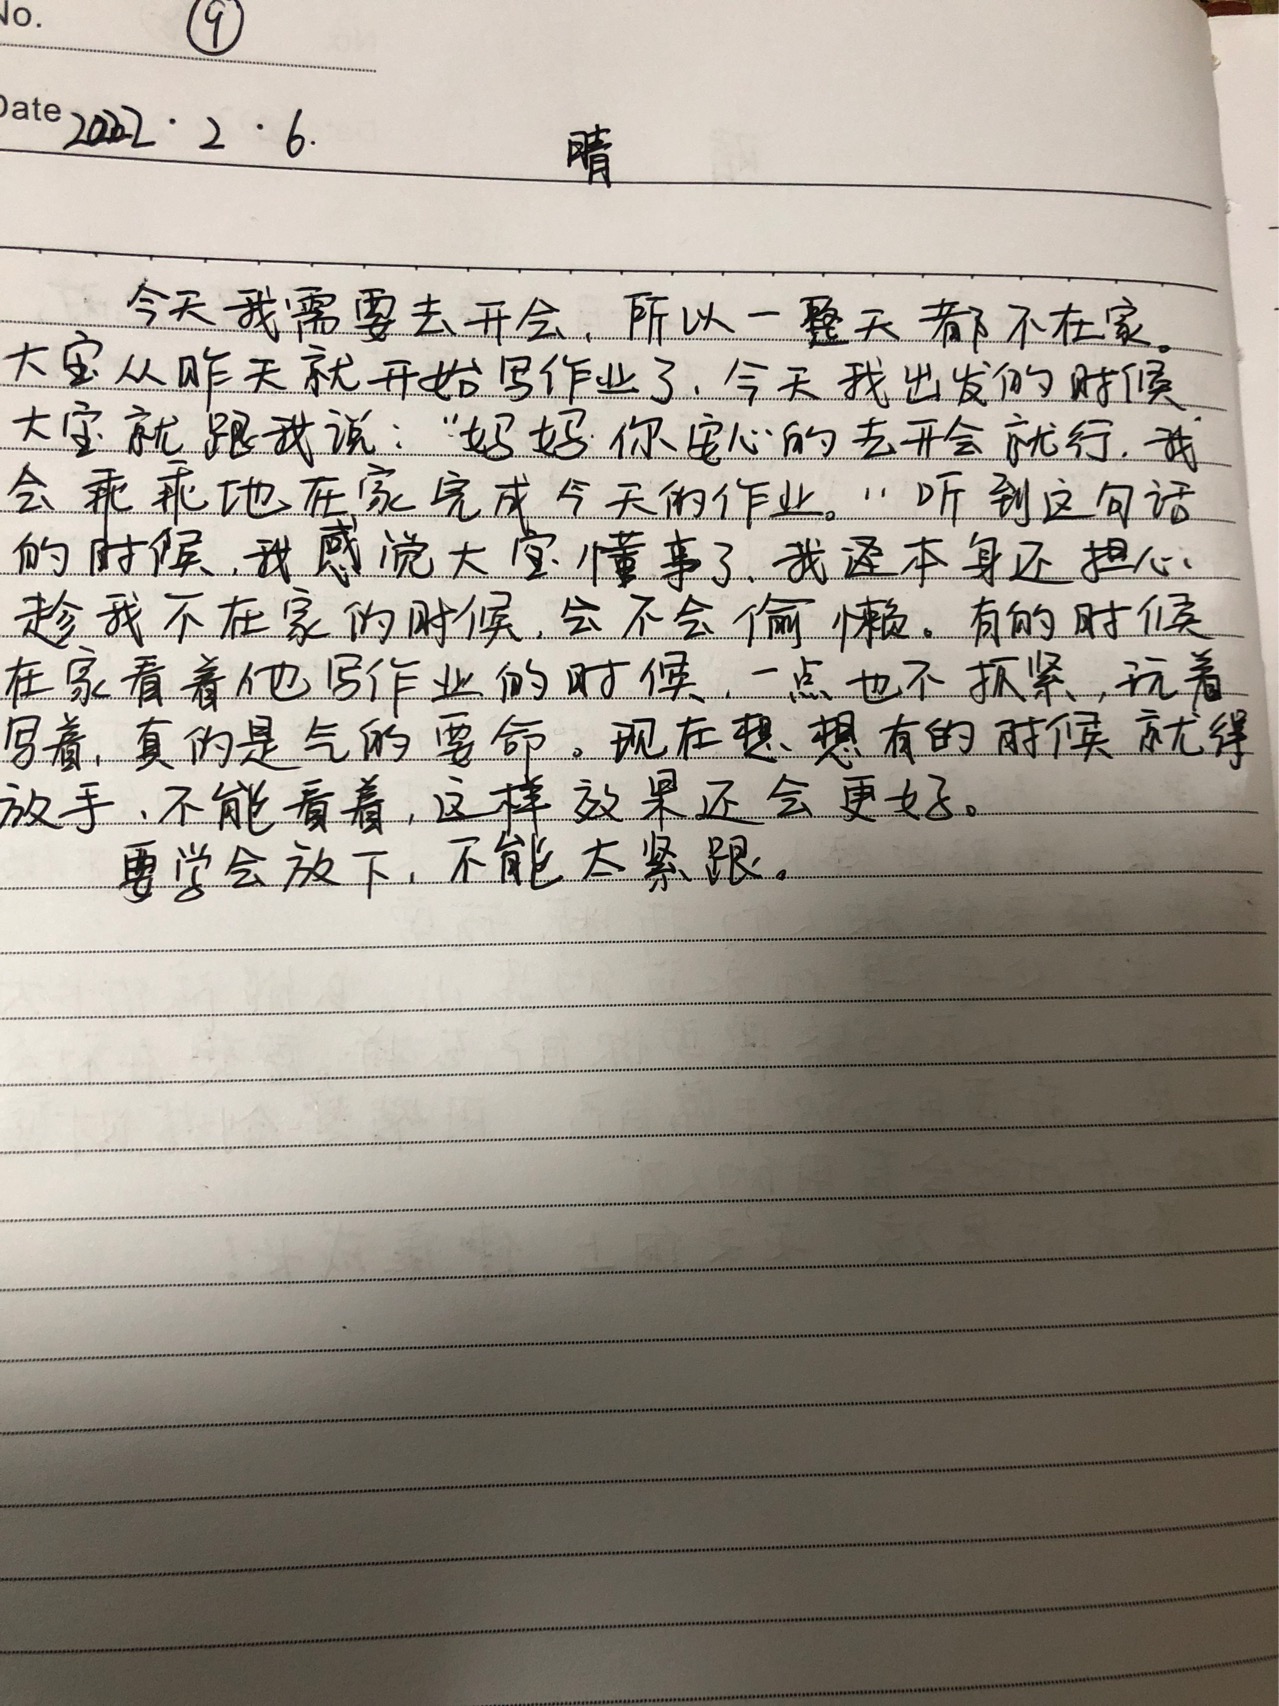 No.
⑨
Date 2022·2·6. 晴
今天我需要去开会,所以一整天都不在家。
大宝从昨天就开始写作业了,今天我出发的时候
大宝就跟我说:“妈妈你安心的去开会就行,我
会乖乖地在家完成今天的作业。”听到这句话
的时候,我感觉大宝懂事了,我还本身还担心
趁我不在家的时候,会不会偷懒。有的时候
在家看着他写作业的时候,一点也不抓紧,玩着
写着,真的是气的要命。现在想想有的时候就得
放手,不能看着,这样效果还会更好。
要学会放下,不能太紧跟。